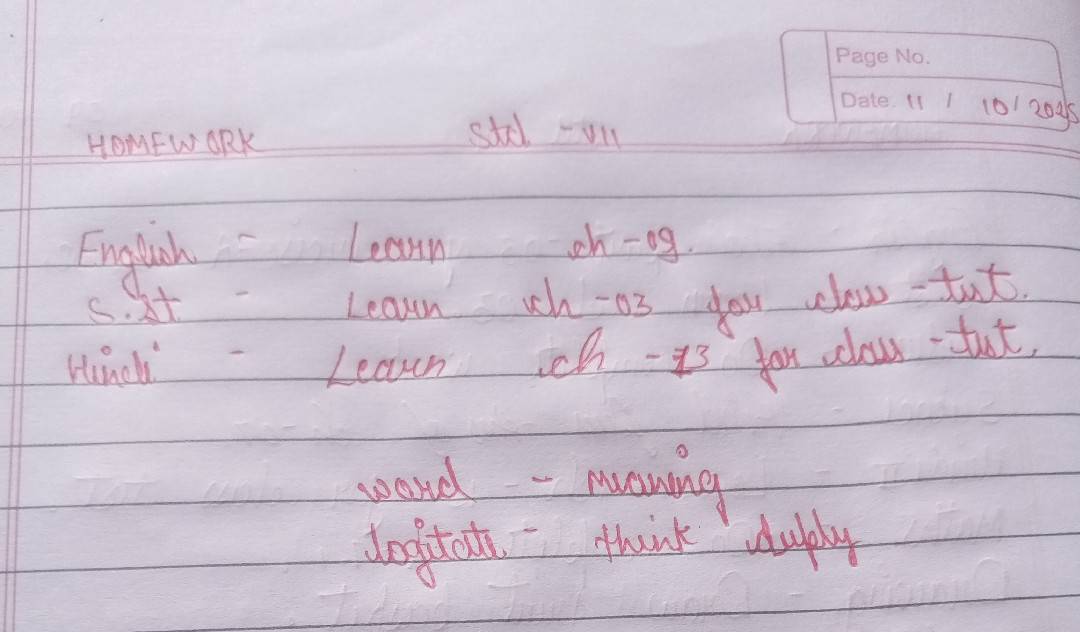 Page No.
Date. 11 / 10 / 2025
HOMEWORK Std. - VII
English - Learn ch - 09.
S.St - Learn ch - 03 for class - tut.
Hindi - Learn ch - 13 for class - tut.
word - meaning
Cogitate - think deeply